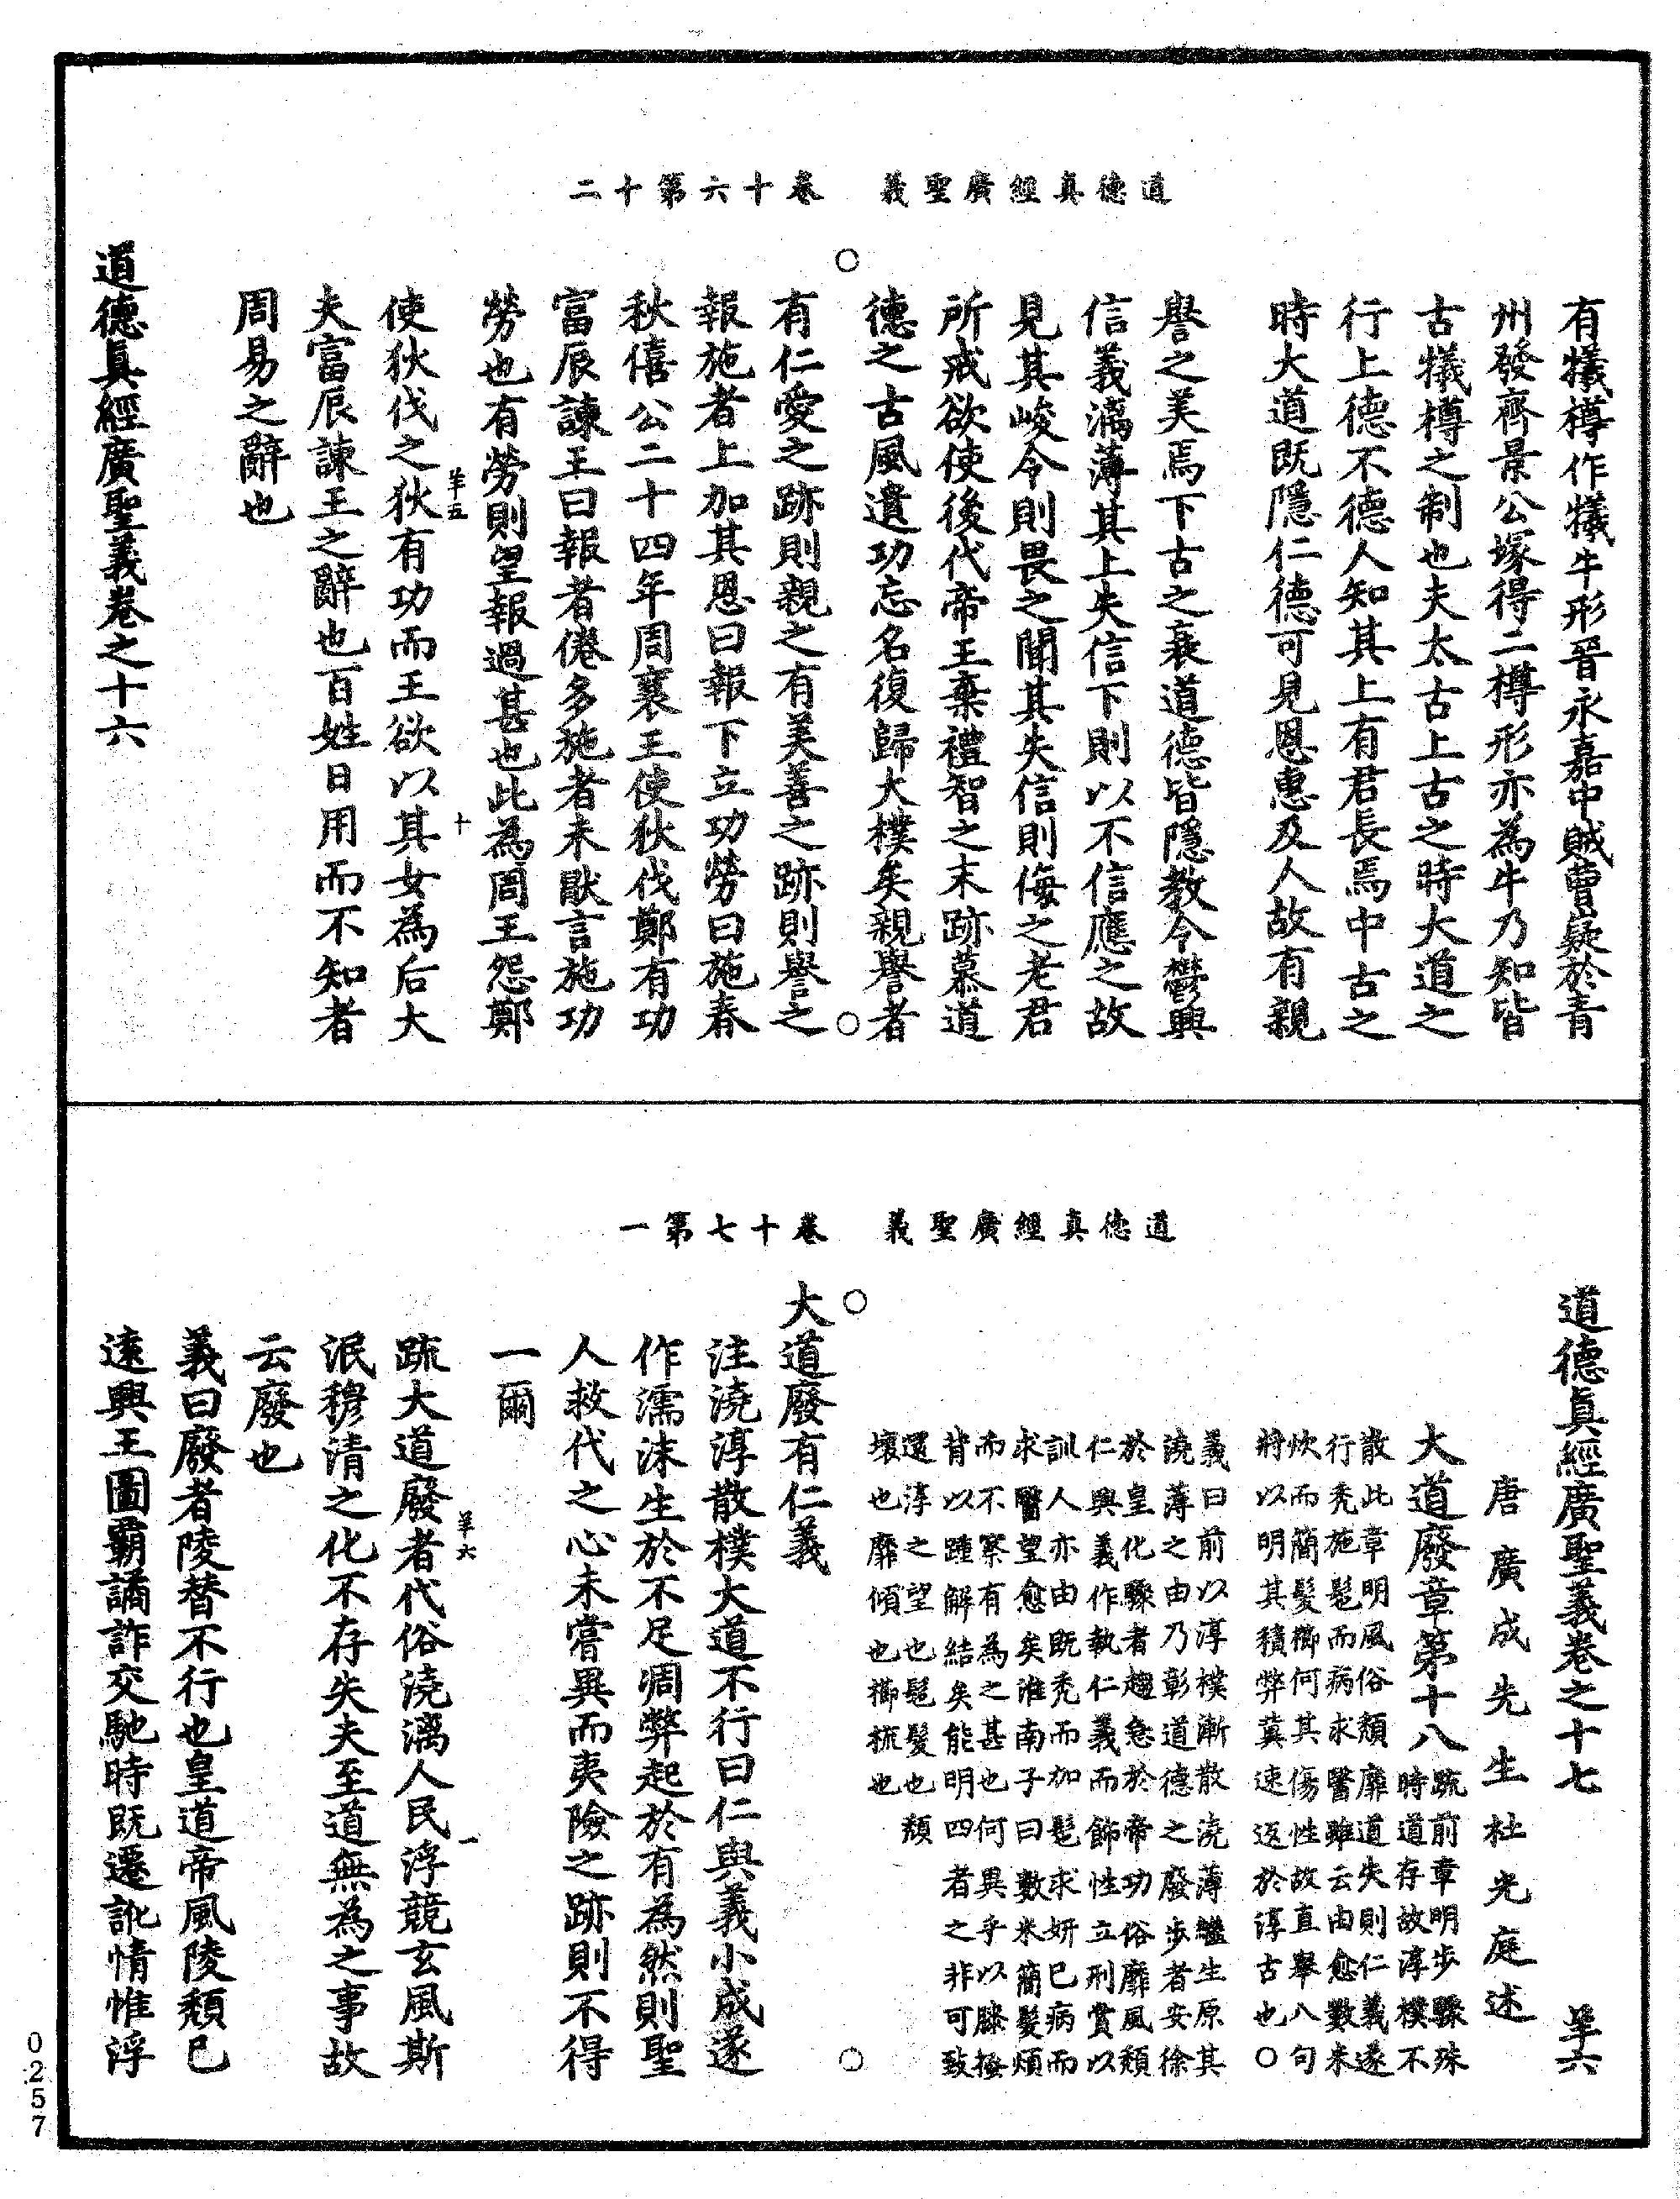 道德真經廣聖義　卷十六第十二
有犧樽作犧牛形晉永嘉中賊曹嶷於青
州發齊景公塚得二樽形亦為牛乃知皆
古犧樽之制也夫太古上古之時大道之
行上德不德人知其上有君長焉中古之
時大道既隱仁德可見恩惠及人故有親
譽之美焉下古之衰道德皆隱教令欝興
信義漓薄其上失信下則以不信應之故
見其峻令則畏之聞其失信則侮之老君
所戒欲使後代帝王棄禮智之末跡慕道
德之古風遺功忘名復歸大樸矣親譽者
有仁愛之跡則親之有美善之跡則譽之
報施者上加其恩曰報下立功勞曰施春
秋僖公二十四年周襄王使狄伐鄭有功
富辰諫王曰報者倦多施者未猒言施功
勞也有勞則望報過甚也此為周王怨鄭
羊五　十
使狄伐之狄有功而王欲以其女為后大
夫富辰諫王之辭也百姓日用而不知者
周易之辭也
道德真經廣聖義卷之十六
道德真經廣聖義　卷十七第一
道德真經廣聖義卷之十七　羊六
唐廣成先生杜光庭述
大道廢章第十八
疏前章明步驟殊
時道存故淳樸不
散此章明風俗頹靡道失則仁義遂
行禿施髢而病求醫雖云由愈數米
炊而簡髮櫛何其傷性故直舉八句
將以明其積弊冀速返於淳古也○
義曰前以淳樸漸散澆薄繼生原其
澆薄之由乃彰道德之廢步者安徐
於皇化驟者趨急於帝功俗靡風頹
仁興義作執仁義而飾性立刑賞以
訓人亦由既禿而加髢求妍已病而
求醫望愈矣淮南子曰數米簡髮煩
而不察有為之甚也何異乎以膝搔
背以踵解結矣能明四者之非可致
還淳之望也髢髮也頹
壞也靡傾也櫛梳也
大道廢有仁義
注澆淳散樸大道不行曰仁與義小成遂
作濡沫生於不足凋弊起於有為然則聖
人救代之心未嘗異而夷險之跡則不得
一爾
羊六　一
疏大道廢者代俗澆漓人民浮競玄風斯
泯穆清之化不存失夫至道無為之事故
云廢也
義曰廢者陵替不行也皇道帝風陵頹已
遠興王圖霸譎詐交馳時既遷訛情惟浮
0257